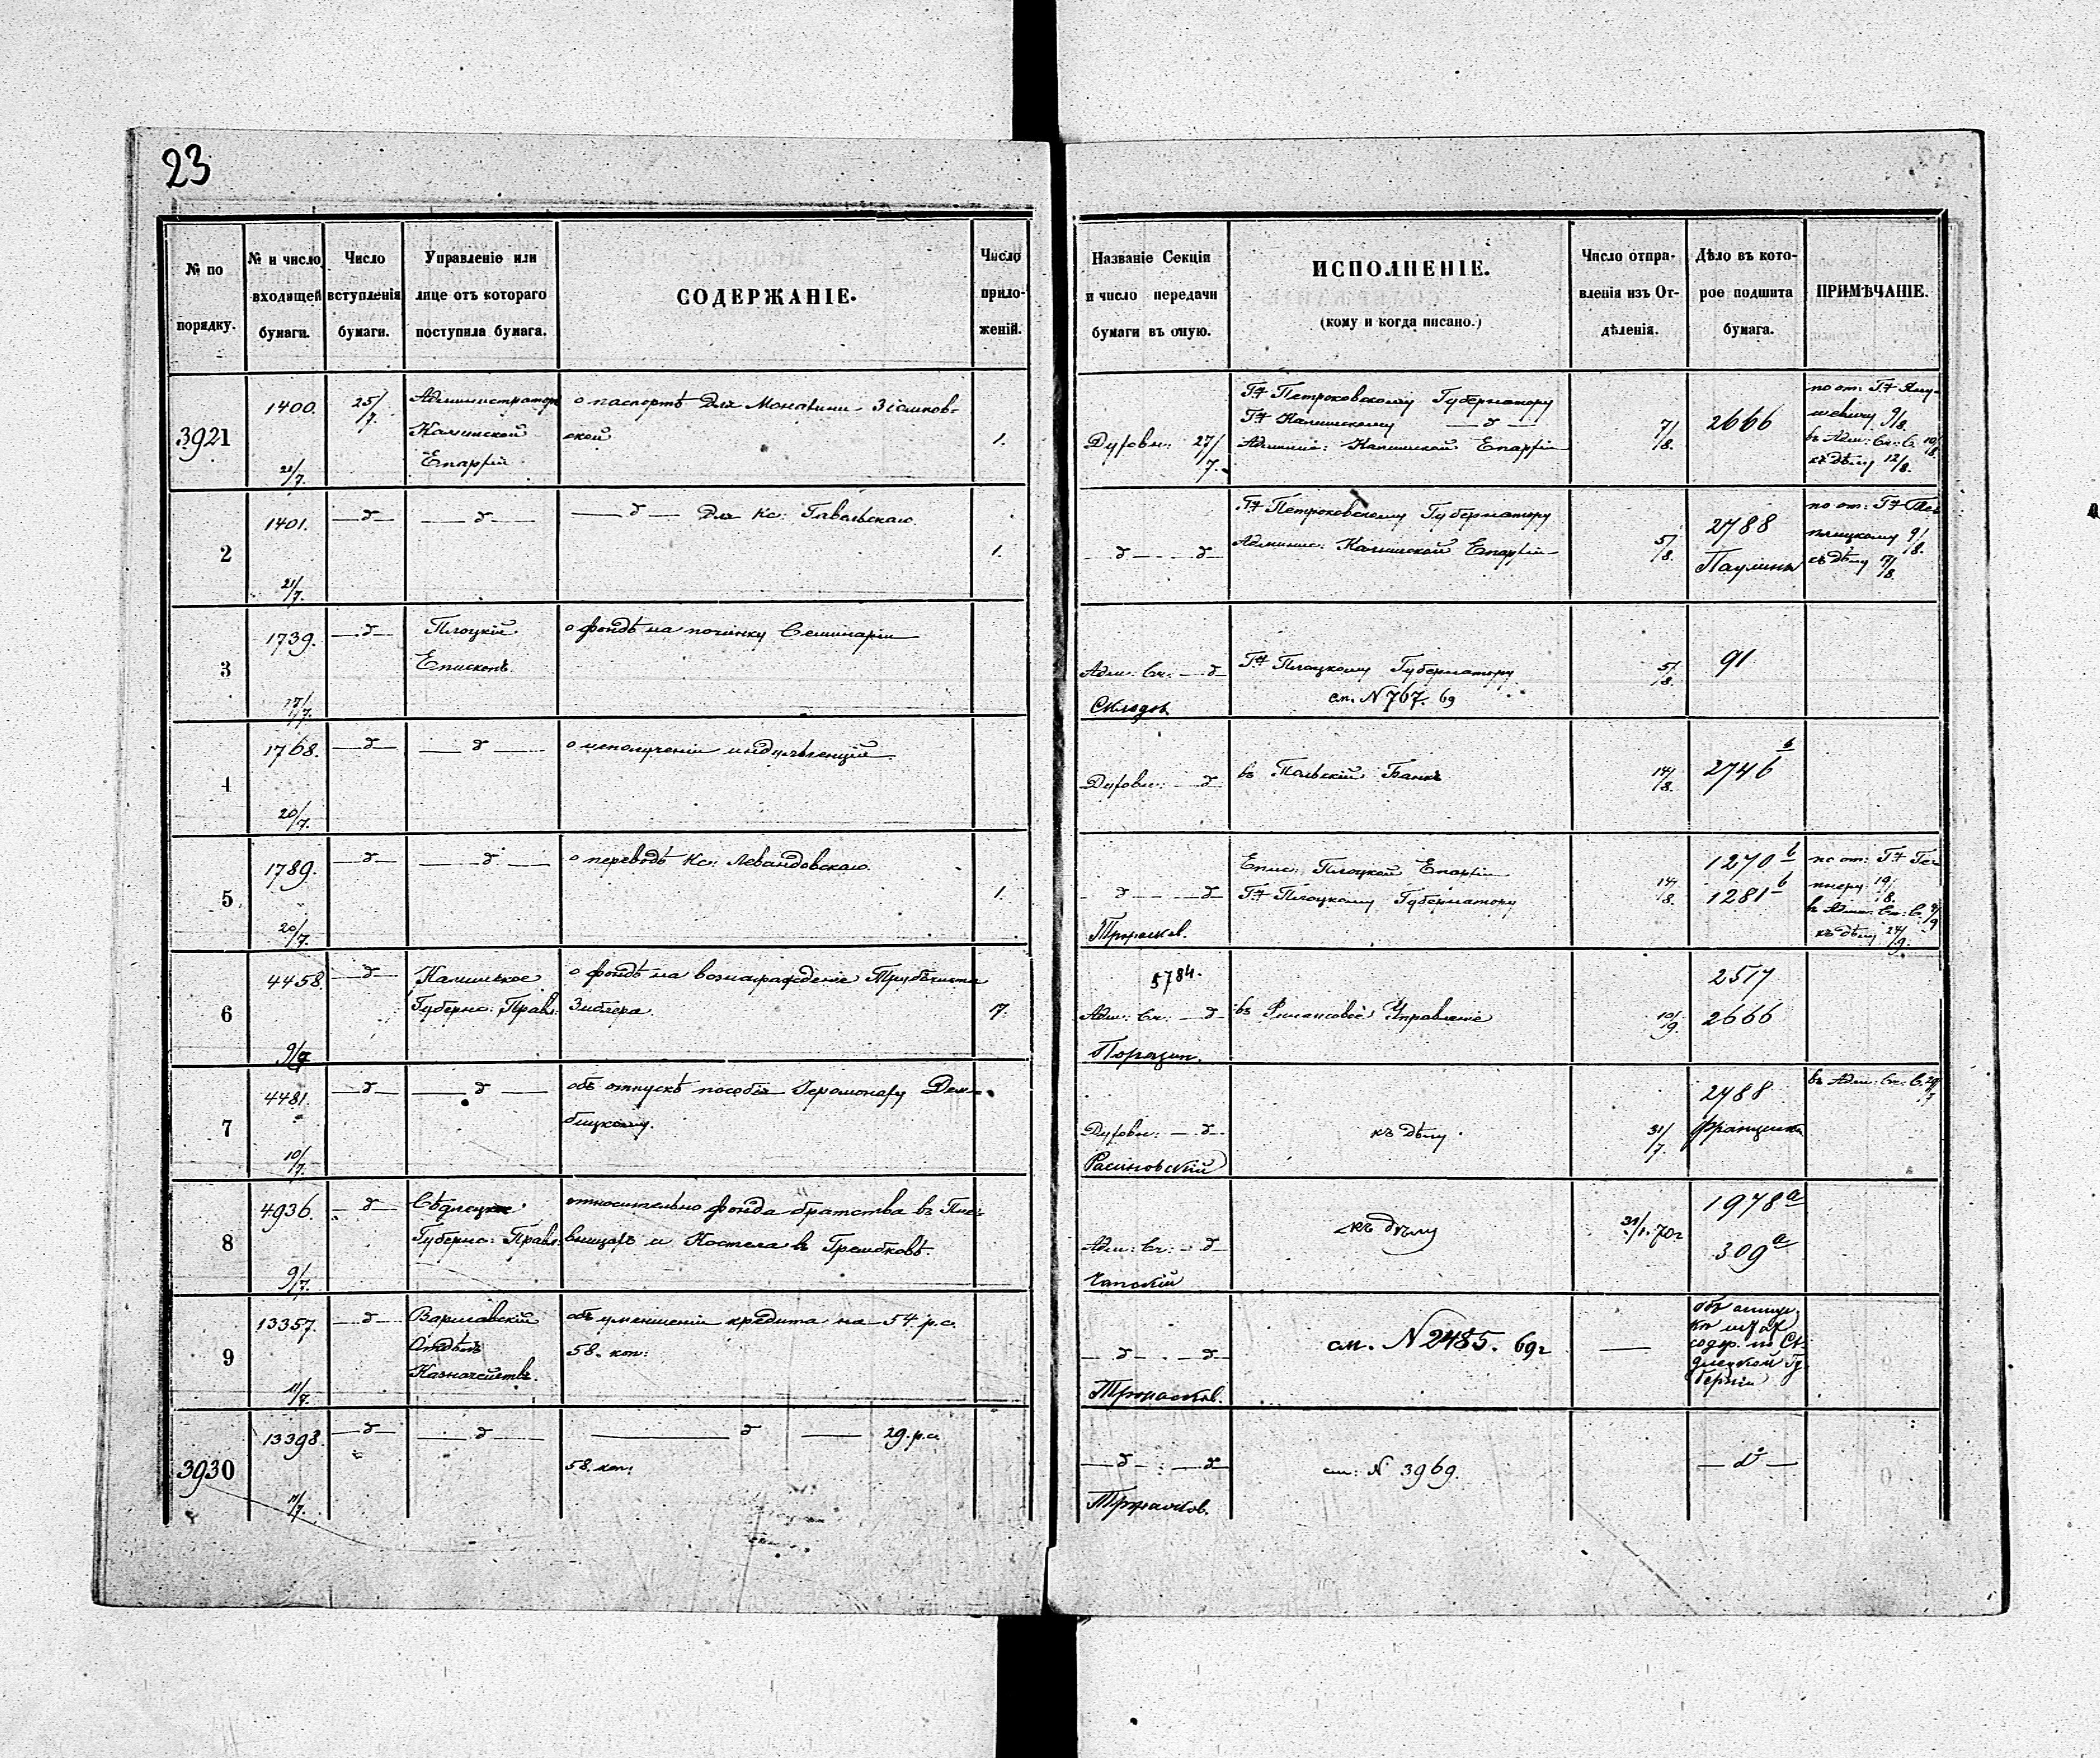 23
№ по порядку.
№ и число входящей бумаги.
Число вступленія бумаги.
Управленіе или лице отъ котораго поступила бумага.
СОДЕРЖАНІЕ.
Число приложеній.
Названіе Секціи и число передачи бумаги въ оную.
ИСПОЛНЕНІЕ.
(кому и когда писано.)
Число отправленія изъ Отдѣленія.
Дѣло въ которое подшита бумага.
ПРИМѢЧАНІЕ.
3921
1400.
21/7.
25/7.
Администраторъ
Калишской
Епархіи
о паспортѣ для Монахини
ской
1.
Духовн: 27/7.
Гну Петроковскому Губернатору
Гну Калишскому — d —
Админис: Калишской Епархіи
7/8.
2666
по от: Гну
9/8.
въ Адм: Сч: С. 10/8
къ дѣлу 12/8.
2
1401.
21/7.
— d —
— d —
— d — Для Кс: Гавельскаго.
1.
— d — d
Гну Петроковскому Губернатору
Админис: Калишской Епархіи
5/8.
2788
Паулины
по от: Гну
9/8.
къ дѣлу 17/8.
3
1739.
17/7.
— d —
Плоцкій
Епископъ.
о фондѣ на починку Семинаріи
Адм: Сч: — d —
Склодов.
Гну Плоцкому Губернатору
см. N 767. 69
5/8.
91
4
1768.
20/7.
— d —
— d —
о неполученіи индульгенцій.
Духовн: — d
въ Польскій Банкъ
14/8.
2746 b
5
1789.
20/7.
— d —
— d —
о переводѣ Кс: Левандовскаго.
1.
— d — d
Тржасков.
Епис: Плоцкой Епархіи
Гну Плоцкому Губернатору
14/8.
1270 b
1281 b
по от: Гну
19/8.
въ Адм: Сч: С.
къ дѣлу 24/9.
6
4458.
9/7
— d —
Калишское
Губернс: Правл:
о фондѣ на вознагражденіе Трубчиста
Зиблера.
17.
5784.
Адм: Сч: — d —
въ Финансовое Управленіе
10/9.
2517
2666
7
4481.
10/7.
— d —
— d —
объ отпускѣ пособія Іеромонаху Дем-
бицкому.
Духовн: — d —
Расиновскій
къ дѣлу.
31/7.
2488
Францискан
въ Адм: Сч: С. 29/7
8
4936.
9/7.
— d —
Сѣдлецкое
Губернс: Правл:
относительно фонда братства въ
и Костела въ Грембковѣ.
Адм: Сч: — d
Чапскій
къ дѣлу
31/1. 70 г
1978 a
309 a
9
13357.
11/7.
— d —
Варшавскій
Отдѣлъ
Казначейства.
объ уменьшеніи кредита на 54. р.с.
58. коп:
— d — d —
Тржасков.
см. N 2485. 69 г
—
объ
содер. по Сѣ-
длецкой Гу-
берніи
3930
13398.
11/7.
— d —
— d —
— d — 29. р.с.
58. коп:
— d — : — d —
Тржасков.
см: N 3969.
— d —